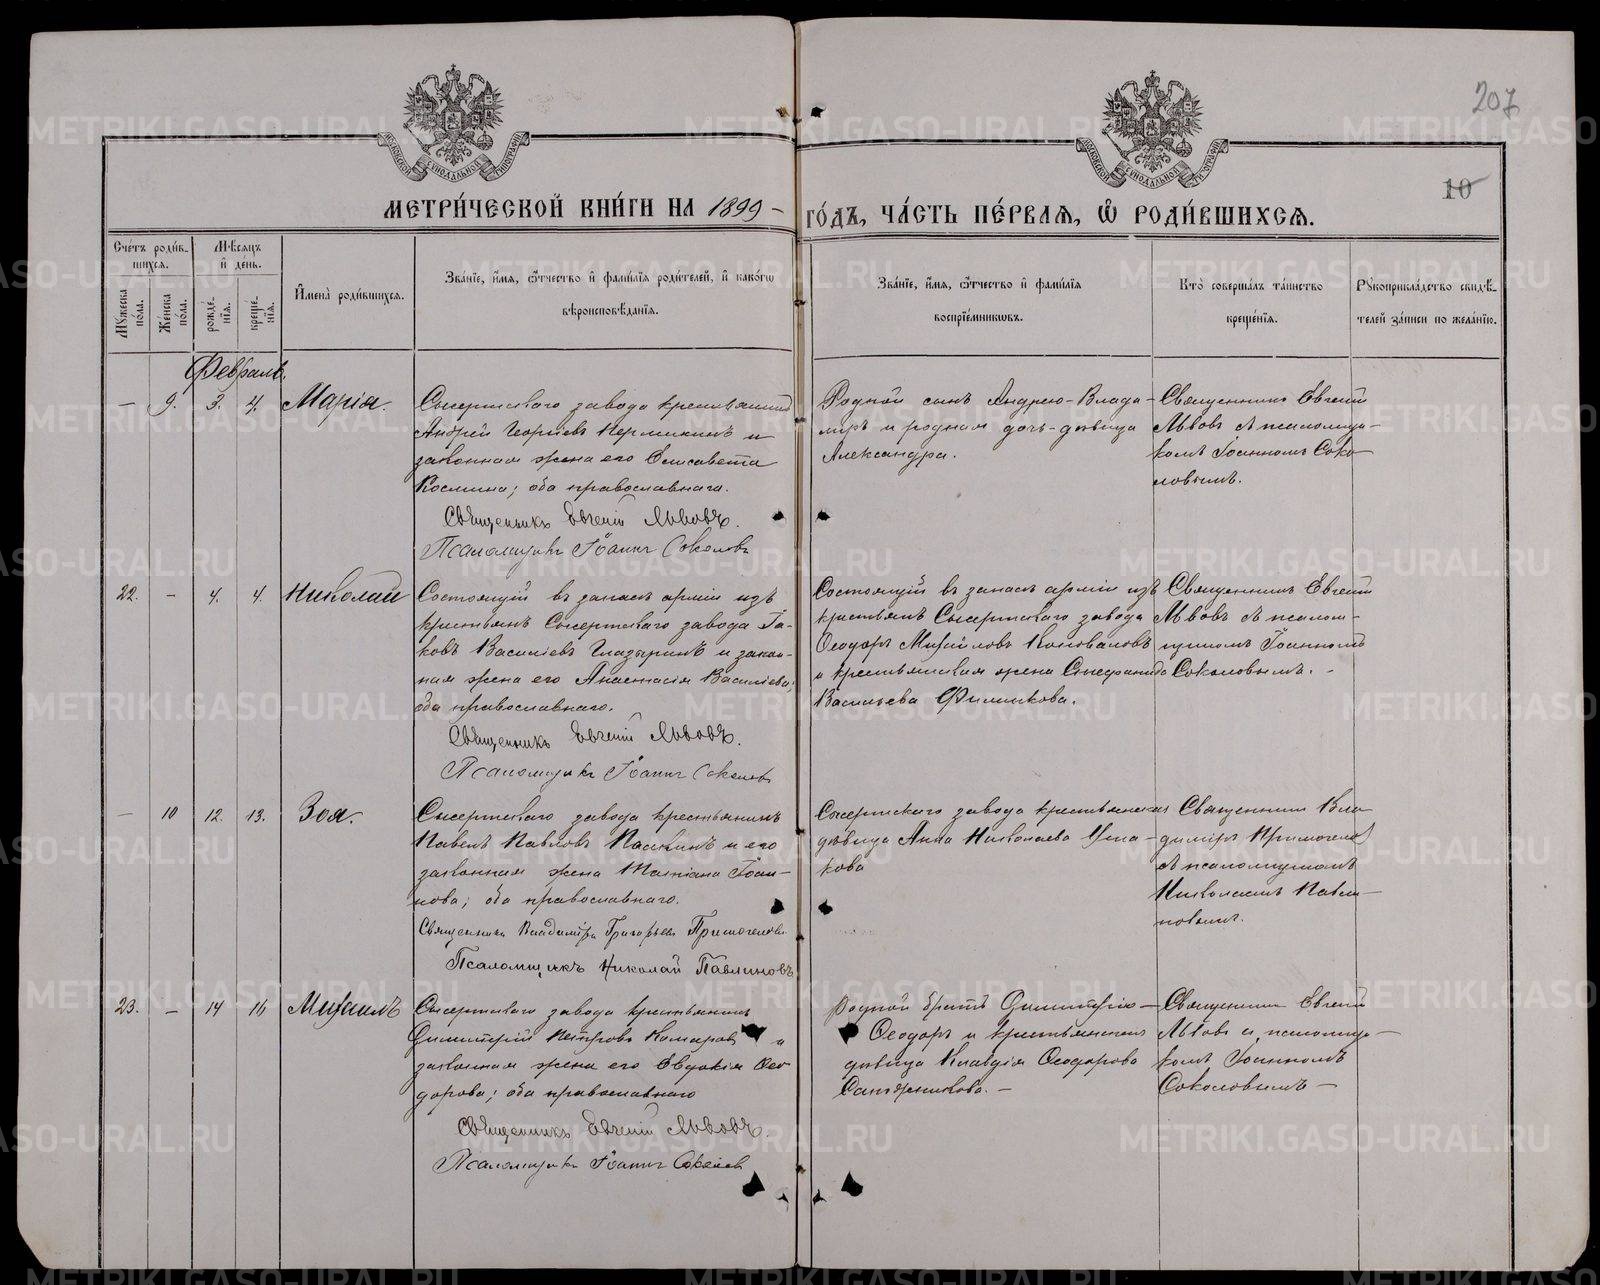 207
10
МОСКОВСКОЙ СѴНОДАЛЬНОЙ ТИПОГРАФІИ
МОСКОВСКОЙ СѴНОДАЛЬНОЙ ТИПОГРАФІИ
МЕТРИ́ЧЕСКОЙ КНИ́ГИ НА 1899 –
ГО́ДЪ, ЧА́СТЬ ПЕ́РВАЯ, Ѡ҆ РОДИ́ВШИХСЯ.
Сче́тъ роди́в-
шихся.
Мѣ́сяцъ
и҆ де́нь.
Мꙋ́жеска
по́ла.
Же́нска
по́ла.
рожде́-
нїя.
креще́-
нїя.
И҆мена̀ роди́вшихся.
Зва́нїе, и҆́мя, ѻ҆́тчество и҆ фами́лїя роди́телей, и҆ како́гѡ
вѣроисповѣ́данїя.
Зва́нїе, и҆́мя, ѻ҆́тчество и҆ фами́лїя
воспрїе́мникѡвъ.
Кто̀ соверша́лъ та́инство
креще́нїя.
Рꙋкоприкла́дство свидѣ́-
телей за́писи по жела́нїю.
Февраль.
— 9. 3. 4. Марія.
Сысертскаго завода крестьянинъ
Андрей Георгіевъ Пермикинъ и
законная жена его Елисавета
Космина; оба православнаго.
Священникъ Евгеній Львовъ.
Псаломщикъ Іоаннъ Соколовъ
Родной сынъ Андрею – Влади-
міръ и родная дочь – дѣвица
Александра.
Священникъ Евгеній
Львовъ съ псаломщи-
комъ Іоанномъ Соко-
ловымъ.
22. – 4. 4. Николай
Состоящій въ запасѣ арміи изъ
крестьянъ Сысертскаго завода Іа-
ковъ Василіевъ Глазыринъ и закон-
ная жена его Анастасія Василіева;
оба православнаго.
Священникъ Евгеній Львовъ.
Псаломщикъ Іоаннъ Соколовъ
Состоящій въ запасѣ арміи изъ
крестьянъ Сысертскаго завода
Ѳеодоръ Михайловъ Коноваловъ
и крестьянская жена Стефанида
Васильева Филинкова.
Священникъ Евгеній
Львовъ съ псалом-
щикомъ Іоанномъ
Соколовымъ. –
— 10 12. 13. Зоя.
Сысертскаго завода крестьянинъ
Павелъ Павловъ Пашкинъ и его
законная жена Татіана Іоан-
нова; оба православнаго.
Священникъ Владиміръ Григорьевъ Примогеновъ
Псаломщикъ Николай Павлиновъ
Сысертскаго завода крестьянская
дѣвица Анна Николаева Уша-
кова
Священникъ Вла-
диміръ Примогеновъ
съ псаломщикомъ
Николаемъ Павли-
новымъ.
23. – 14 16 Михаилъ
Сысертскаго завода крестьянинъ
Димитрій Петровъ Комаровъ и
законная жена его Евдокія Ѳео-
дорова; оба православнаго
Священникъ Евгеній Львовъ.
Псаломщикъ Іоаннъ Соколовъ
Родной братъ Димитрію –
Ѳеодоръ и крестьянская
дѣвица Клавдія Ѳеодорова
–
Священникъ Евгеній
Львовъ съ псаломщи-
комъ Іоанномъ
Соколовымъ –
METRIKI.GASO-URAL.RU